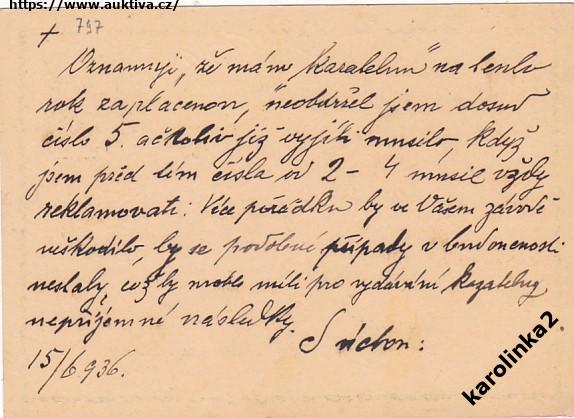 https://www.auktiva.cz/
+ 797
Oznamuji, že mám "Kazatelnu" na tento
rok zaplacenou, neobdržel jsem dosud
číslo 5. ačkoliv již vyjíti musilo, když
jsem před tím čísla od 2 - 4 musil vždy
reklamovati: Více pořádku by ve Vašem závodě
neškodilo, by se podobné případy v budoucnosti
nestaly, což by mohlo míti pro vydávání Kazatelny
nepříjemné následky.
S úctou:
15/6 936.
karolinka2